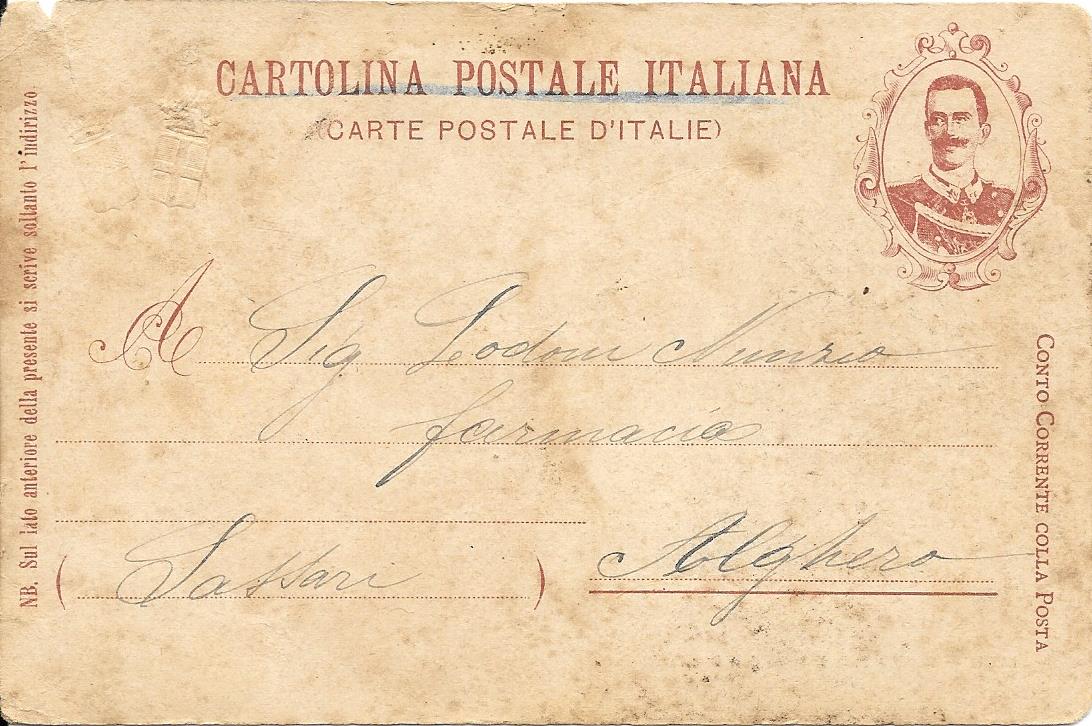 CARTOLINA POSTALE ITALIANA
(CARTE POSTALE D'ITALIE)
NB. Sul lato anteriore della presente si scrive soltanto l'indirizzo
A Sig Lodoni Nunzio
farmacia
(Sassari)
Alghero
CONTO CORRENTE COLLA POSTA